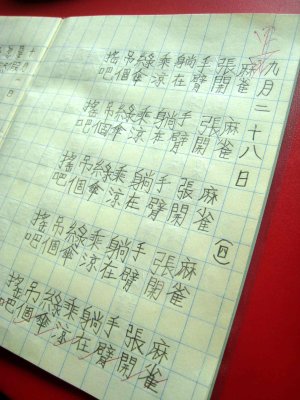 九月二十八日
麻雀 麻雀 麻雀 麻雀 麻雀
張開 張開 張開 張開 張開
手臂 手臂 手臂 手臂 手臂
躺在 躺在 躺在 躺在 躺在
乘涼 乘涼 乘涼 乘涼 乘涼
綠傘 綠傘 綠傘 綠傘 綠傘
吊個 吊個 吊個 吊個 吊個
搖吧 搖吧 搖吧 搖吧 搖吧